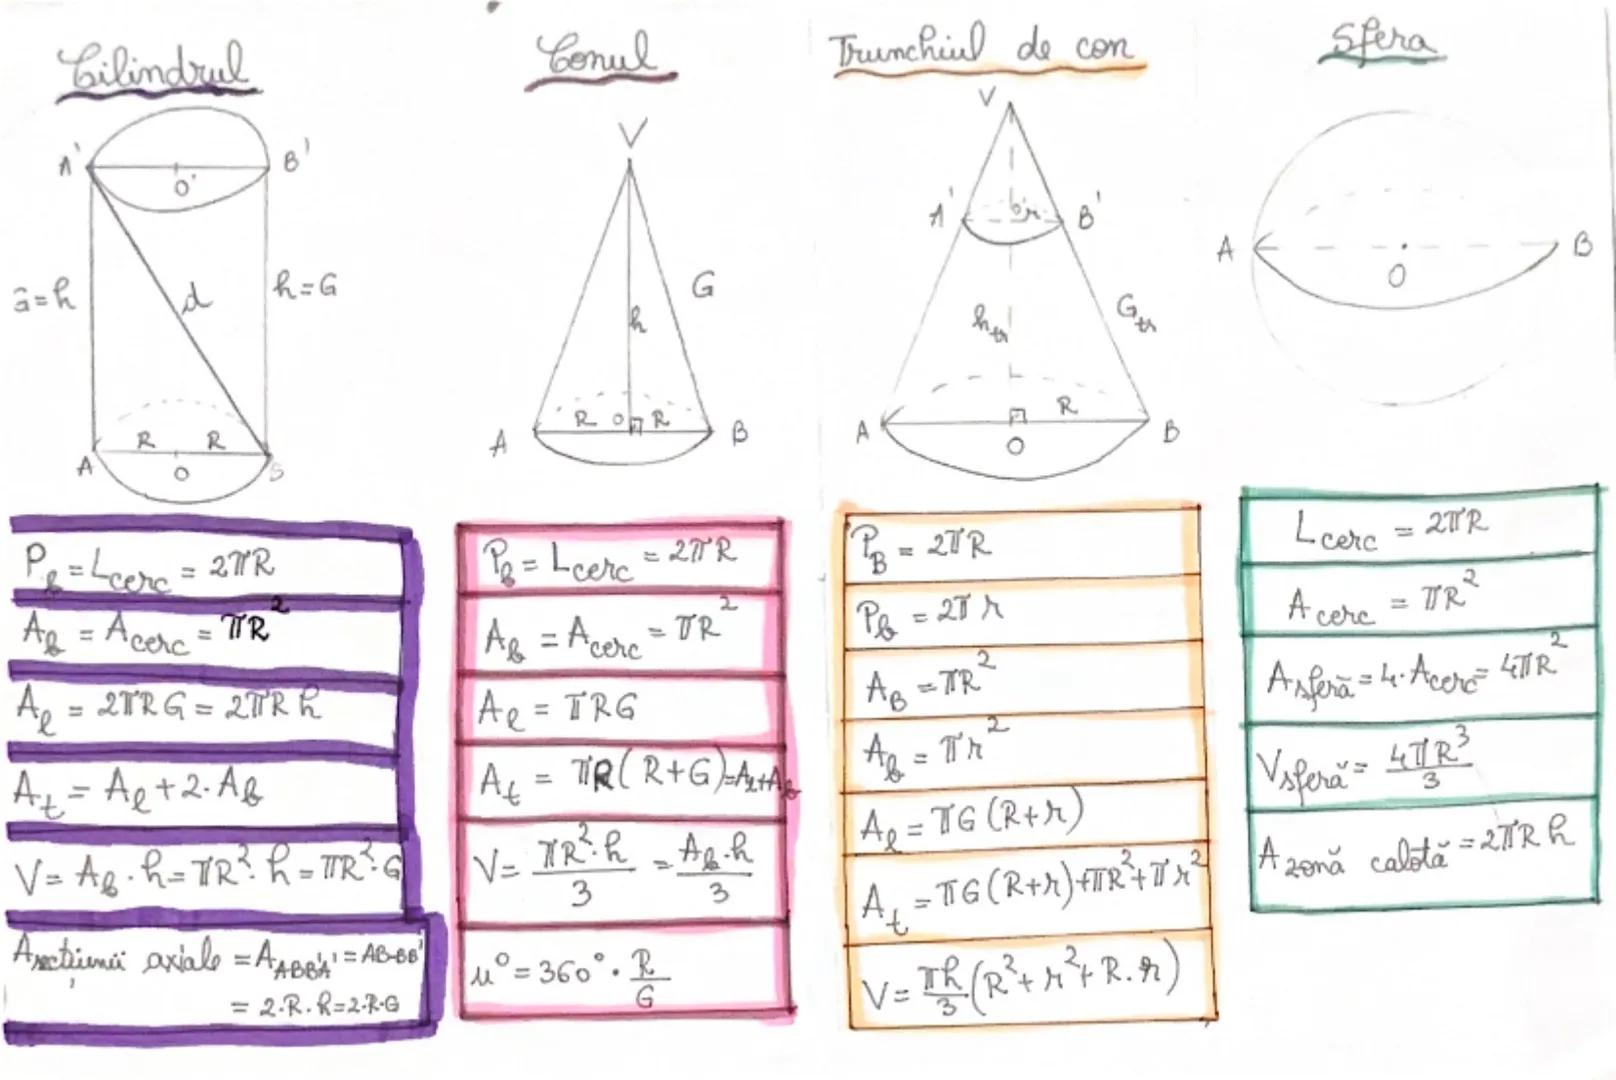 Cilindrul
A'
B'
O'
d
h=G
R
R
A
O
P_b = L_cerc = 2πR
A_b = A_cerc = πR²
A_l = 2πRG = 2πRh
A_t = A_l + 2·A_b
V = A_b · h = πR²·h = πR²·G
A secțiunii axiale = A_ABB'A' = AB·BB'
= 2·R·h = 2·R·G
Conul
V
G
h
R
O
R
A
B
P_b = L_cerc = 2πR
A_b = A_cerc = πR²
A_l = πRG
A_t = πR(R+G) = A_l + A_b
V = πR²·h/3 = A_b·h/3
u° = 360° · R/G
Trunchiul de con
V
A'
r
B'
h_tr
G_tr
R
A
O
B
P_B = 2πR
P_b = 2πr
A_B = πR²
A_b = πr²
A_l = πG(R+r)
A_t = πG(R+r) + πR² + πr²
V = πh/3 (R² + r² + R·r)
Sfera
A
O
B
L cerc = 2πR
A cerc = πR²
A sferă = 4·A cerc = 4πR²
V sferă = 4πR³/3
A zonă calotă = 2πRh